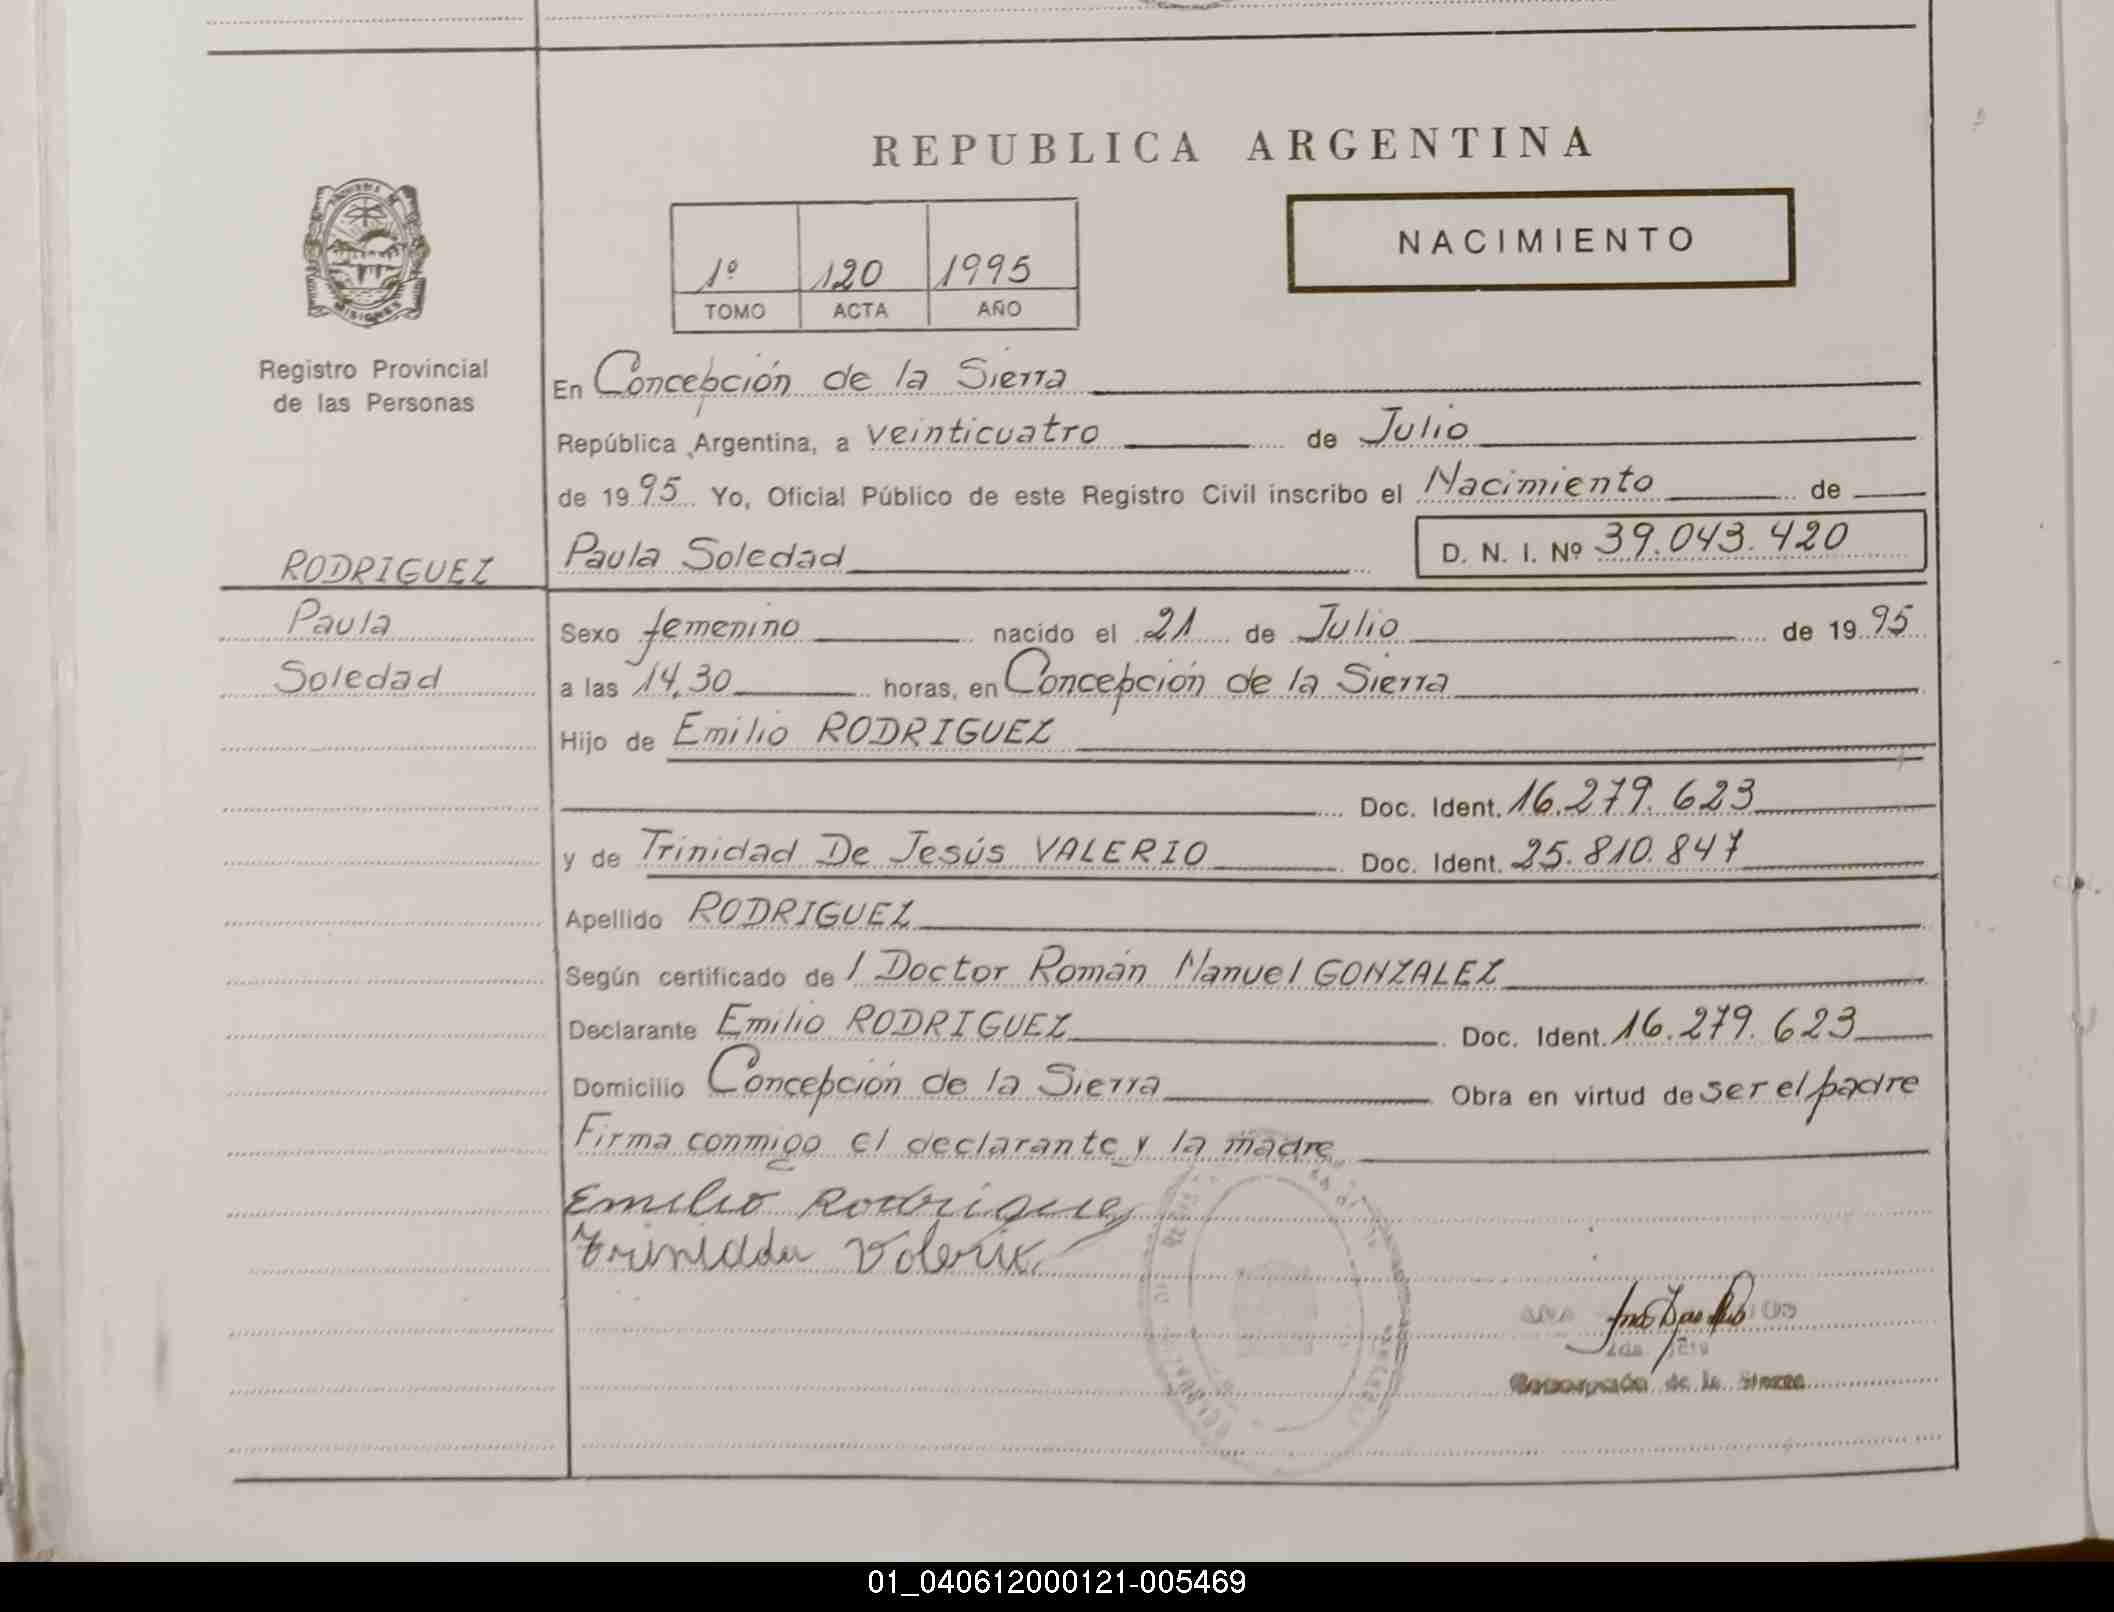 REPUBLICA ARGENTINA
NACIMIENTO
1º 120 1995
TOMO ACTA AÑO
MISIONES
Registro Provincial
de las Personas
En Concepción de la Sierra
República Argentina, a veinticuatro de Julio
de 1995 Yo, Oficial Público de este Registro Civil inscribo el Nacimiento de
RODRIGUEZ
Paula Soledad D. N. I. Nº 39.043.420
Paula
Sexo femenino nacido el 21 de Julio de 1995
Soledad
a las 14,30 horas, en Concepción de la Sierra
Hijo de Emilio RODRIGUEZ
Doc. Ident. 16.279.623
y de Trinidad De Jesús VALERIO Doc. Ident. 25.810.847
Apellido RODRIGUEZ
Según certificado de l Doctor Román Manuel GONZALEZ
Declarante Emilio RODRIGUEZ Doc. Ident. 16.279.623
Domicilio Concepción de la Sierra Obra en virtud de ser el padre
Firma conmigo el declarante y la madre
Emilio Rodriguez
Concepción de la Sierra
01_040612000121-005469